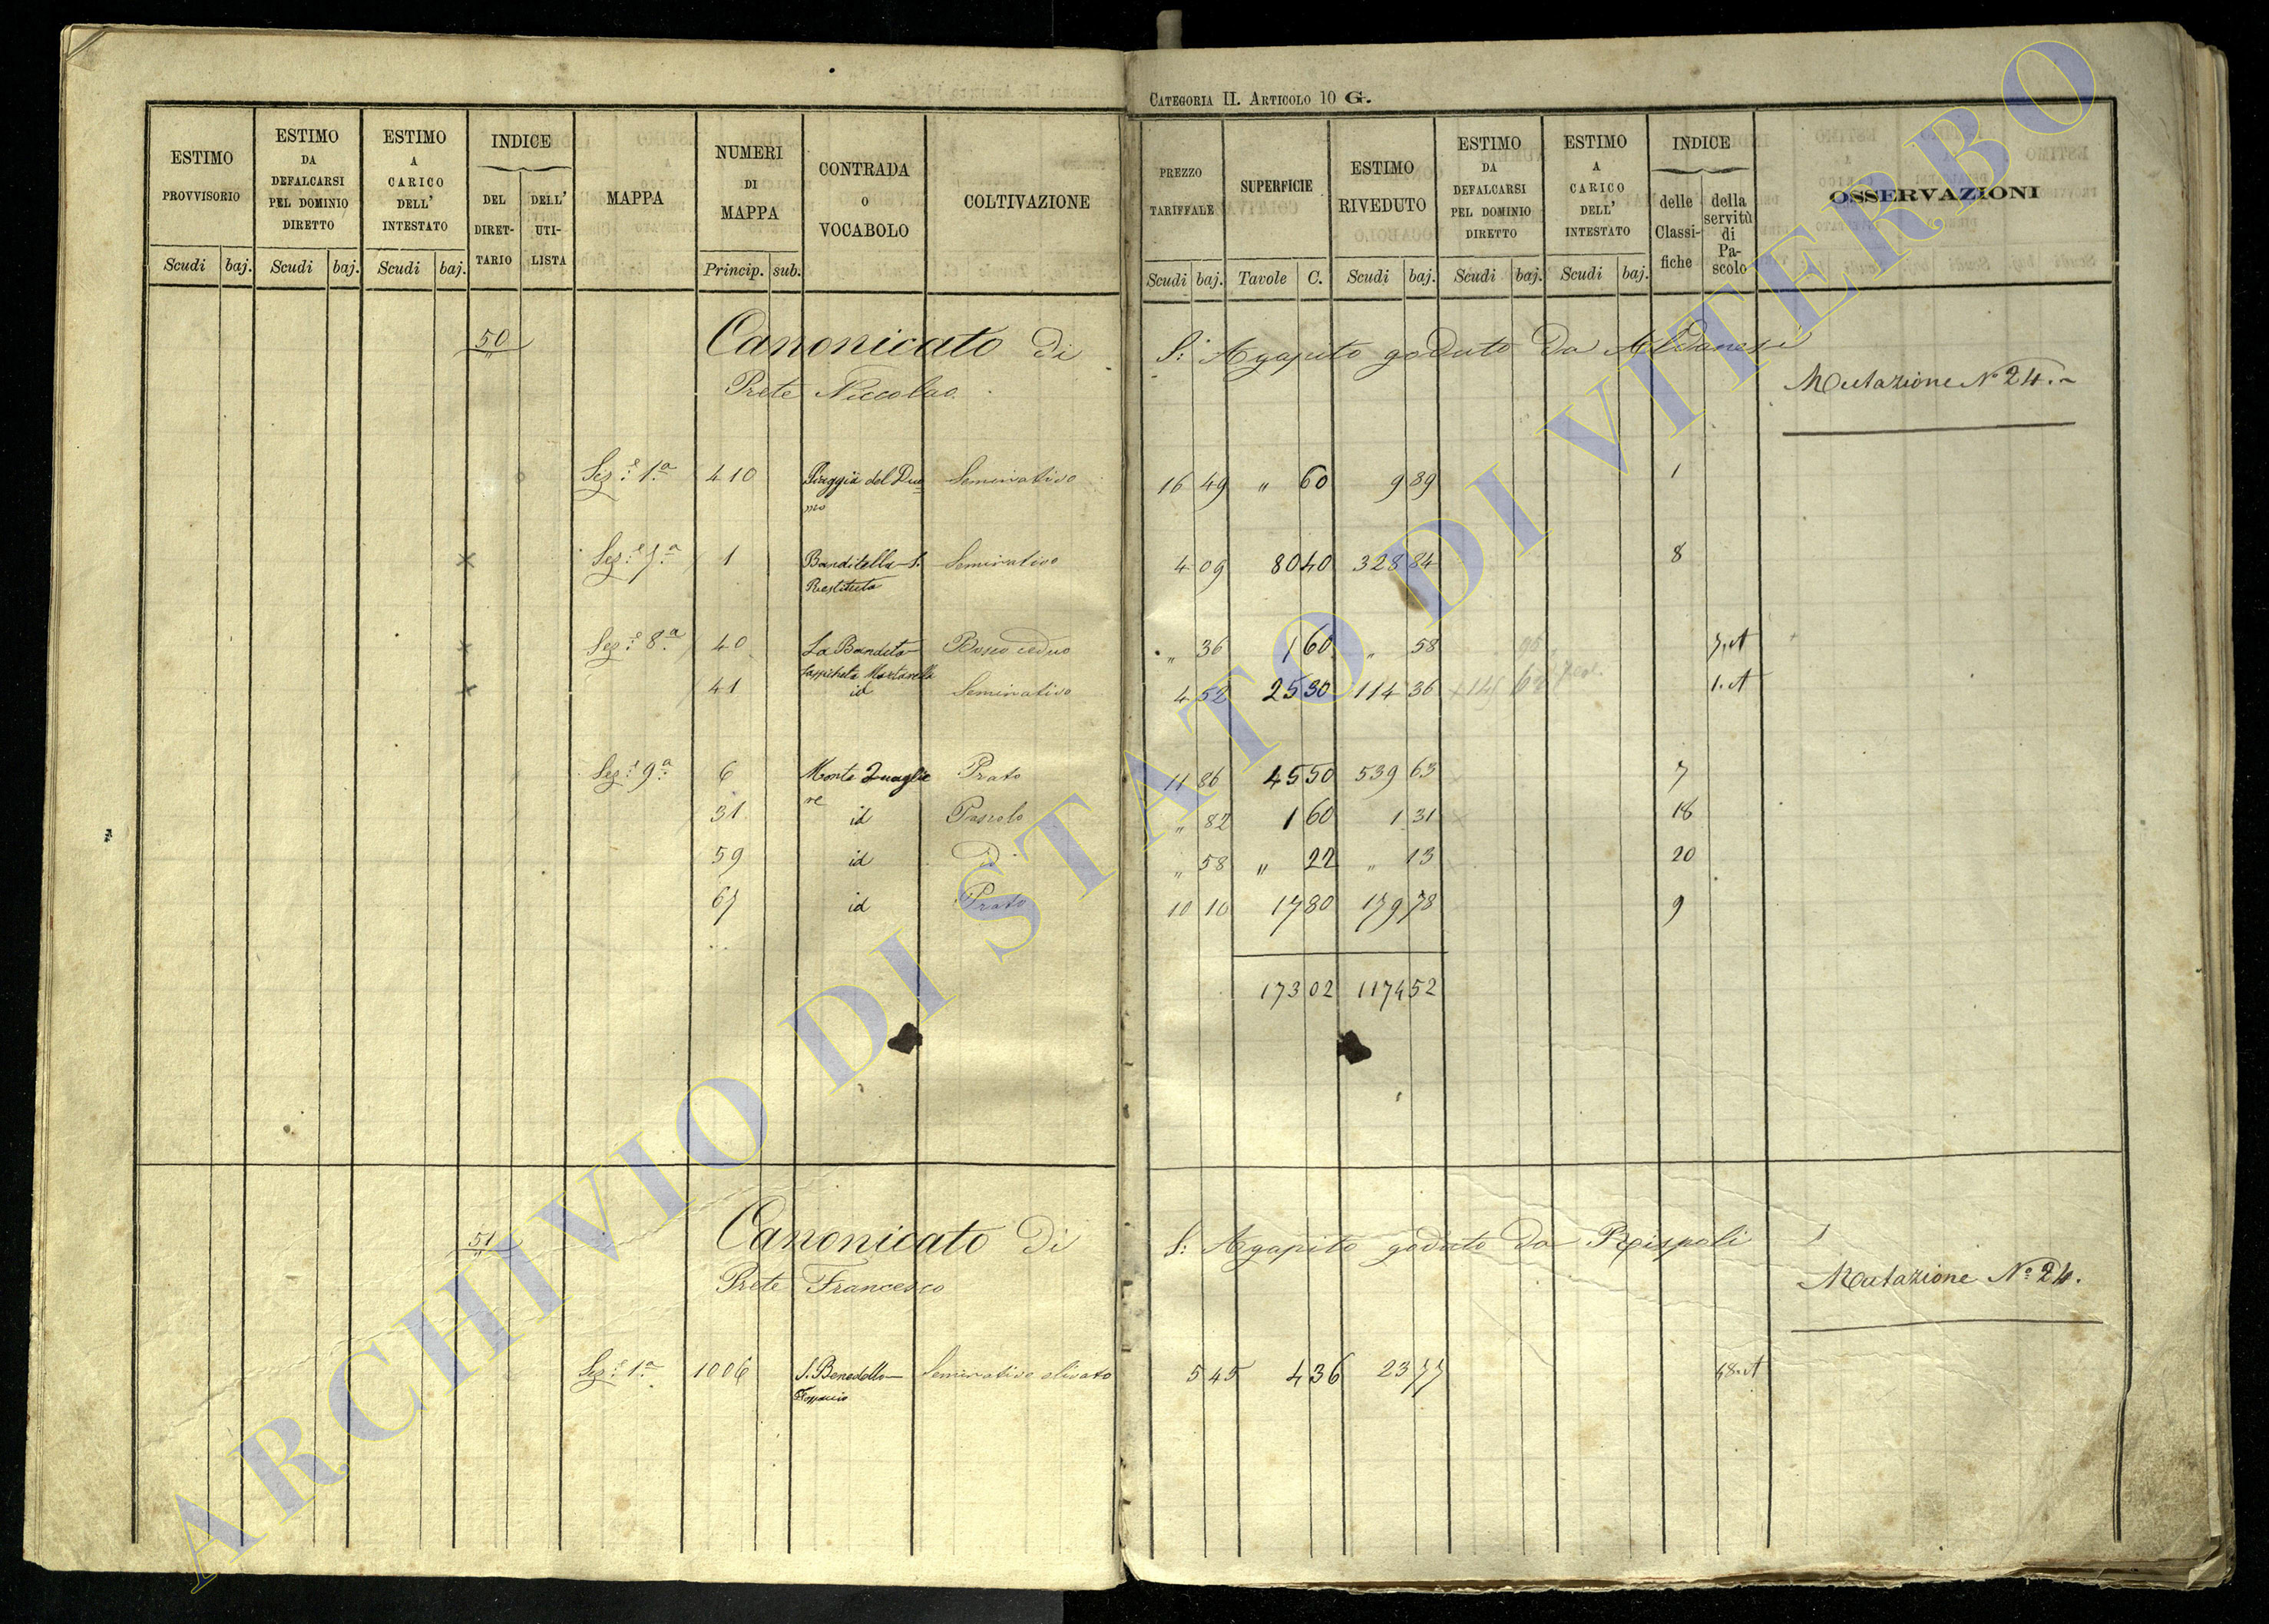 CATEGORIA II. ARTICOLO 10 G.
ESTIMO PROVVISORIO | ESTIMO DA DEFALCARSI PEL DOMINIO DIRETTO | ESTIMO A CARICO DELL' INTESTATO | INDICE DEL DIRETTARIO | DELL' UTILISTA | MAPPA | NUMERI DI MAPPA | CONTRADA O VOCABOLO | COLTIVAZIONE | PREZZO TARIFFALE | SUPERFICIE | ESTIMO RIVEDUTO | ESTIMO DA DEFALCARSI PEL DOMINIO DIRETTO | ESTIMO A CARICO DELL' INTESTATO | INDICE delle Classifiche | della servitù di Pascolo | OSSERVAZIONI
Scudi | baj. | Scudi | baj. | Scudi | baj. | Princip. | sub. | Scudi | baj. | Tavole | C. | Scudi | baj. | Scudi | baj. | Scudi | baj.
50 Canonicato di S: Agapito goduto da
Prete Niccolao
Mutazione N° 24.
Sez.e 1.a 410 del Duomo Seminativo 16 49 " 60 9 89 1
Sez.e 7.a 1 Banditella S. Restituta Seminativo 4 09 80 40 328 84 8
Sez.e 8.a 40 La Bandita Bosco ceduo " 36 1 60 " 58 7.A
41 id Seminativo 4 52 25 30 114 36 1.A
Sez.e 9.a 6 Monte Quagliere Prato 11 86 45 50 539 63 7
31 id Pascolo " 82 1 60 1 31 18
59 id " 58 " 22 " 13 20
67 id Prato 10 10 17 80 179 78 9
173 02 1174 52
51 Canonicato di S: Agapito goduto da Rispoli
Prete Francesco
Mutazione N° 24.
Sez.e 1.a 1006 S. Benedetto Seminativo olivato 5 45 4 36 23 77 18.A
ARCHIVIO DI STATO DI VITERBO